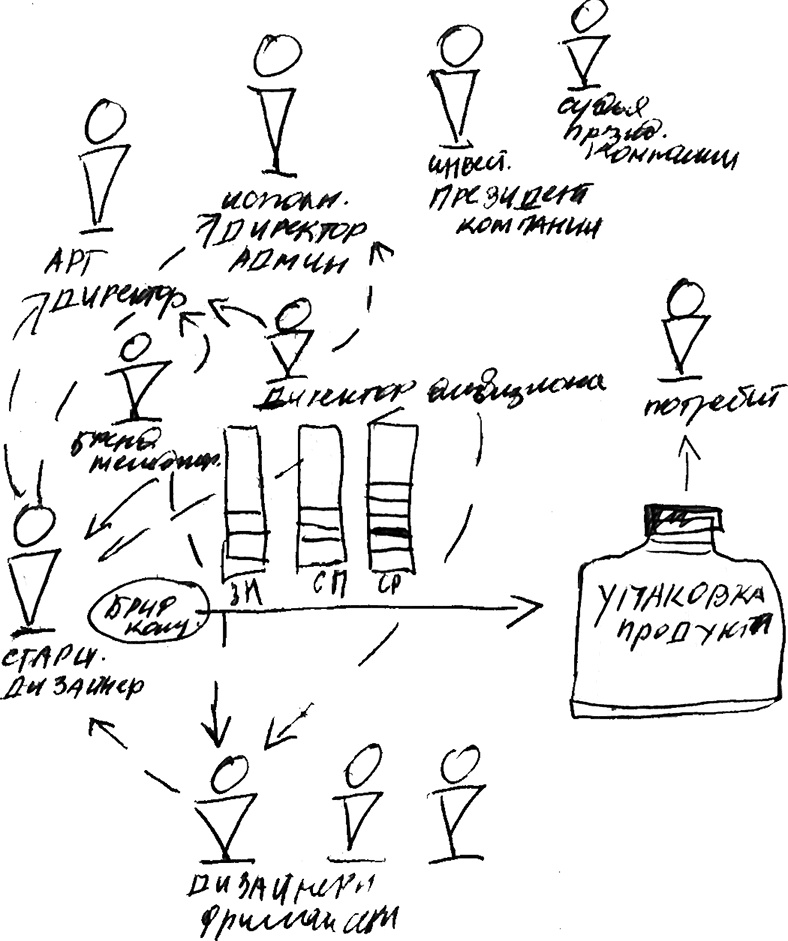 судья
презид.
компании
инвест.
президент
компании
исполн.
директор
админ
АРТ
директор
директор дивизиона
потребит
бренд
менеджер.
ЗН
СП
СР
бриф
упаковка
продукта
старш.
дизайнер
дизайнеры
фрилансеры